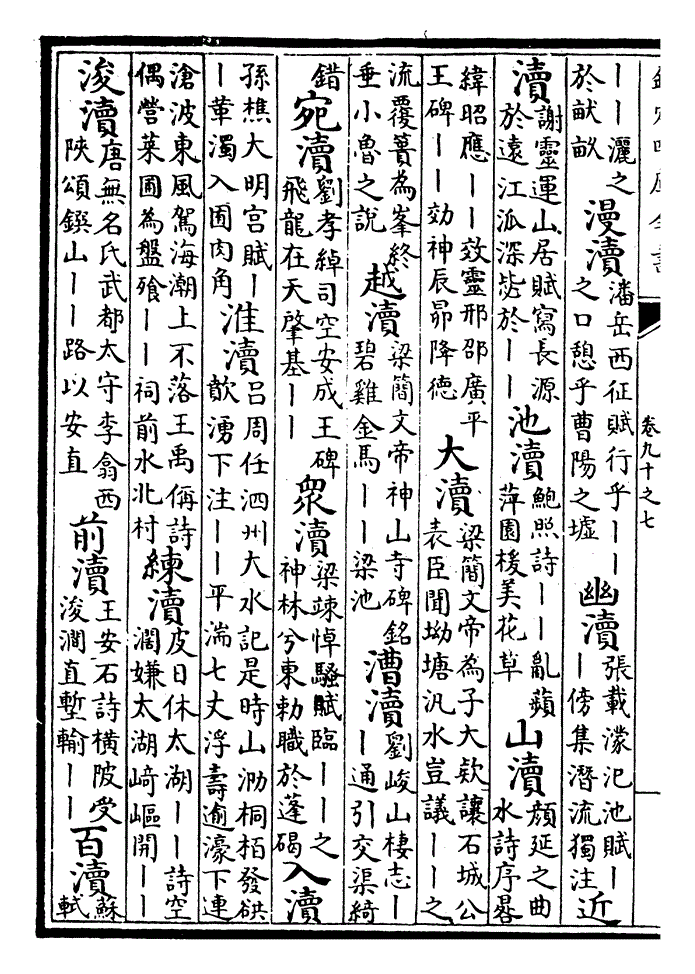 欽定四庫全書
卷九十之七
——灑之於畎畝 漫瀆 潘岳西征賦行乎——之口憩乎曹陽之墟 幽瀆 張載濛汜池賦——傍集潛流獨注 近
瀆 謝靈運山居賦寫長源於遠江泒深毖於—— 池瀆 鮑照詩——亂蘋萍園梭美花草 山瀆 顔延之曲水詩序晷
緯昭應——效靈邢邵廣平王碑——効神辰昴降德 大瀆 梁簡文帝為子大欵讓石城公表臣聞坳塘汎水豈議——之
流覆簣為峯終垂小魯之說 越瀆 梁簡文帝神山寺碑銘碧雞金馬——梁池 漕瀆 劉峻山棲志——通引交渠綺
錯 宛瀆 劉孝綽司空安成王碑飛龍在天肇基—— 衆瀆 梁竦悼騷賦臨——之神林兮東勅職於蓬碣 入瀆
孫樵大明宫賦——葷濁入圊肉角 淮瀆 吕周任泗州大水記是時山泐桐栢發谼歕湧下注——平湍七丈浮壽逾濠下連
滄波東風駕海潮上不落王禹偁詩偶營菜圃為盤飱——祠前水北村 練瀆 皮日休太湖——詩空濶嫌太湖﨑嶇開——
浚瀆 唐無名氏武都太守李翕西陜頌鐉山——路以安直 前瀆 王安石詩橫陂受浚澗直塹輸—— 百瀆 蘇軾